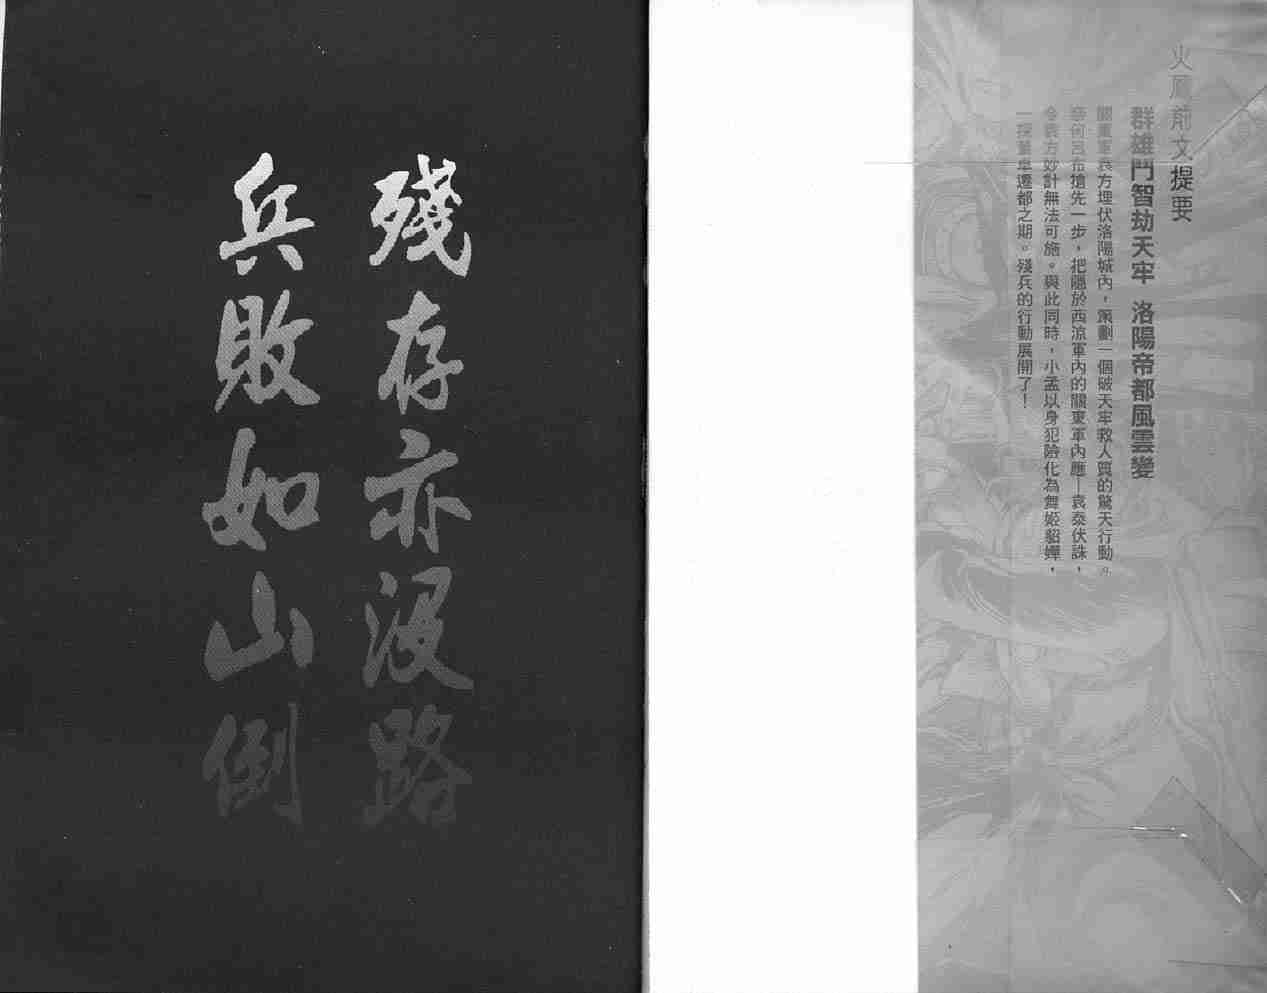 火鳳前文提要
群雄鬥智劫天牢 洛陽帝都風雲變
關東軍袁方埋伏洛陽城內，策劃一個破天牢救人質的驚天行動。
奈何呂布搶先一步，把隱於西涼軍內的關東軍內應—袁泰伏誅，
令袁方妙計無法可施。與此同時，小孟以身犯險化為舞姬貂嬋，
一探董卓遷都之期。殘兵的行動展開了！
殘存亦没路
兵敗如山倒